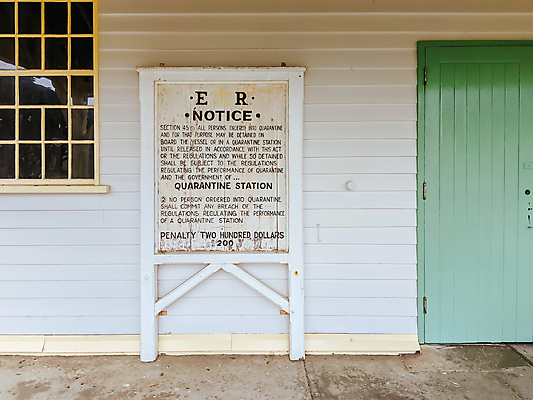 · E R ·
· NOTICE ·
SECTION 45 ALL PERSONS ORDERED INTO QUARANTINE
AND FOR THAT PURPOSE MAY BE DETAINED ON
BOARD THE VESSEL OR IN A QUARANTINE STATION
UNTIL RELEASED IN ACCORDANCE WITH THIS ACT
OR THE REGULATIONS AND WHILE SO DETAINED
SHALL BE SUBJECT TO THE REGULATIONS
REGULATING THE PERFORMANCE OF QUARANTINE
AND THE GOVERNMENT OF ...
QUARANTINE STATION
2 NO PERSON ORDERED INTO QUARANTINE
SHALL COMMIT ANY BREACH OF THE
REGULATIONS REGULATING THE PERFORMANCE
OF A QUARANTINE STATION
PENALTY TWO HUNDRED DOLLARS
200